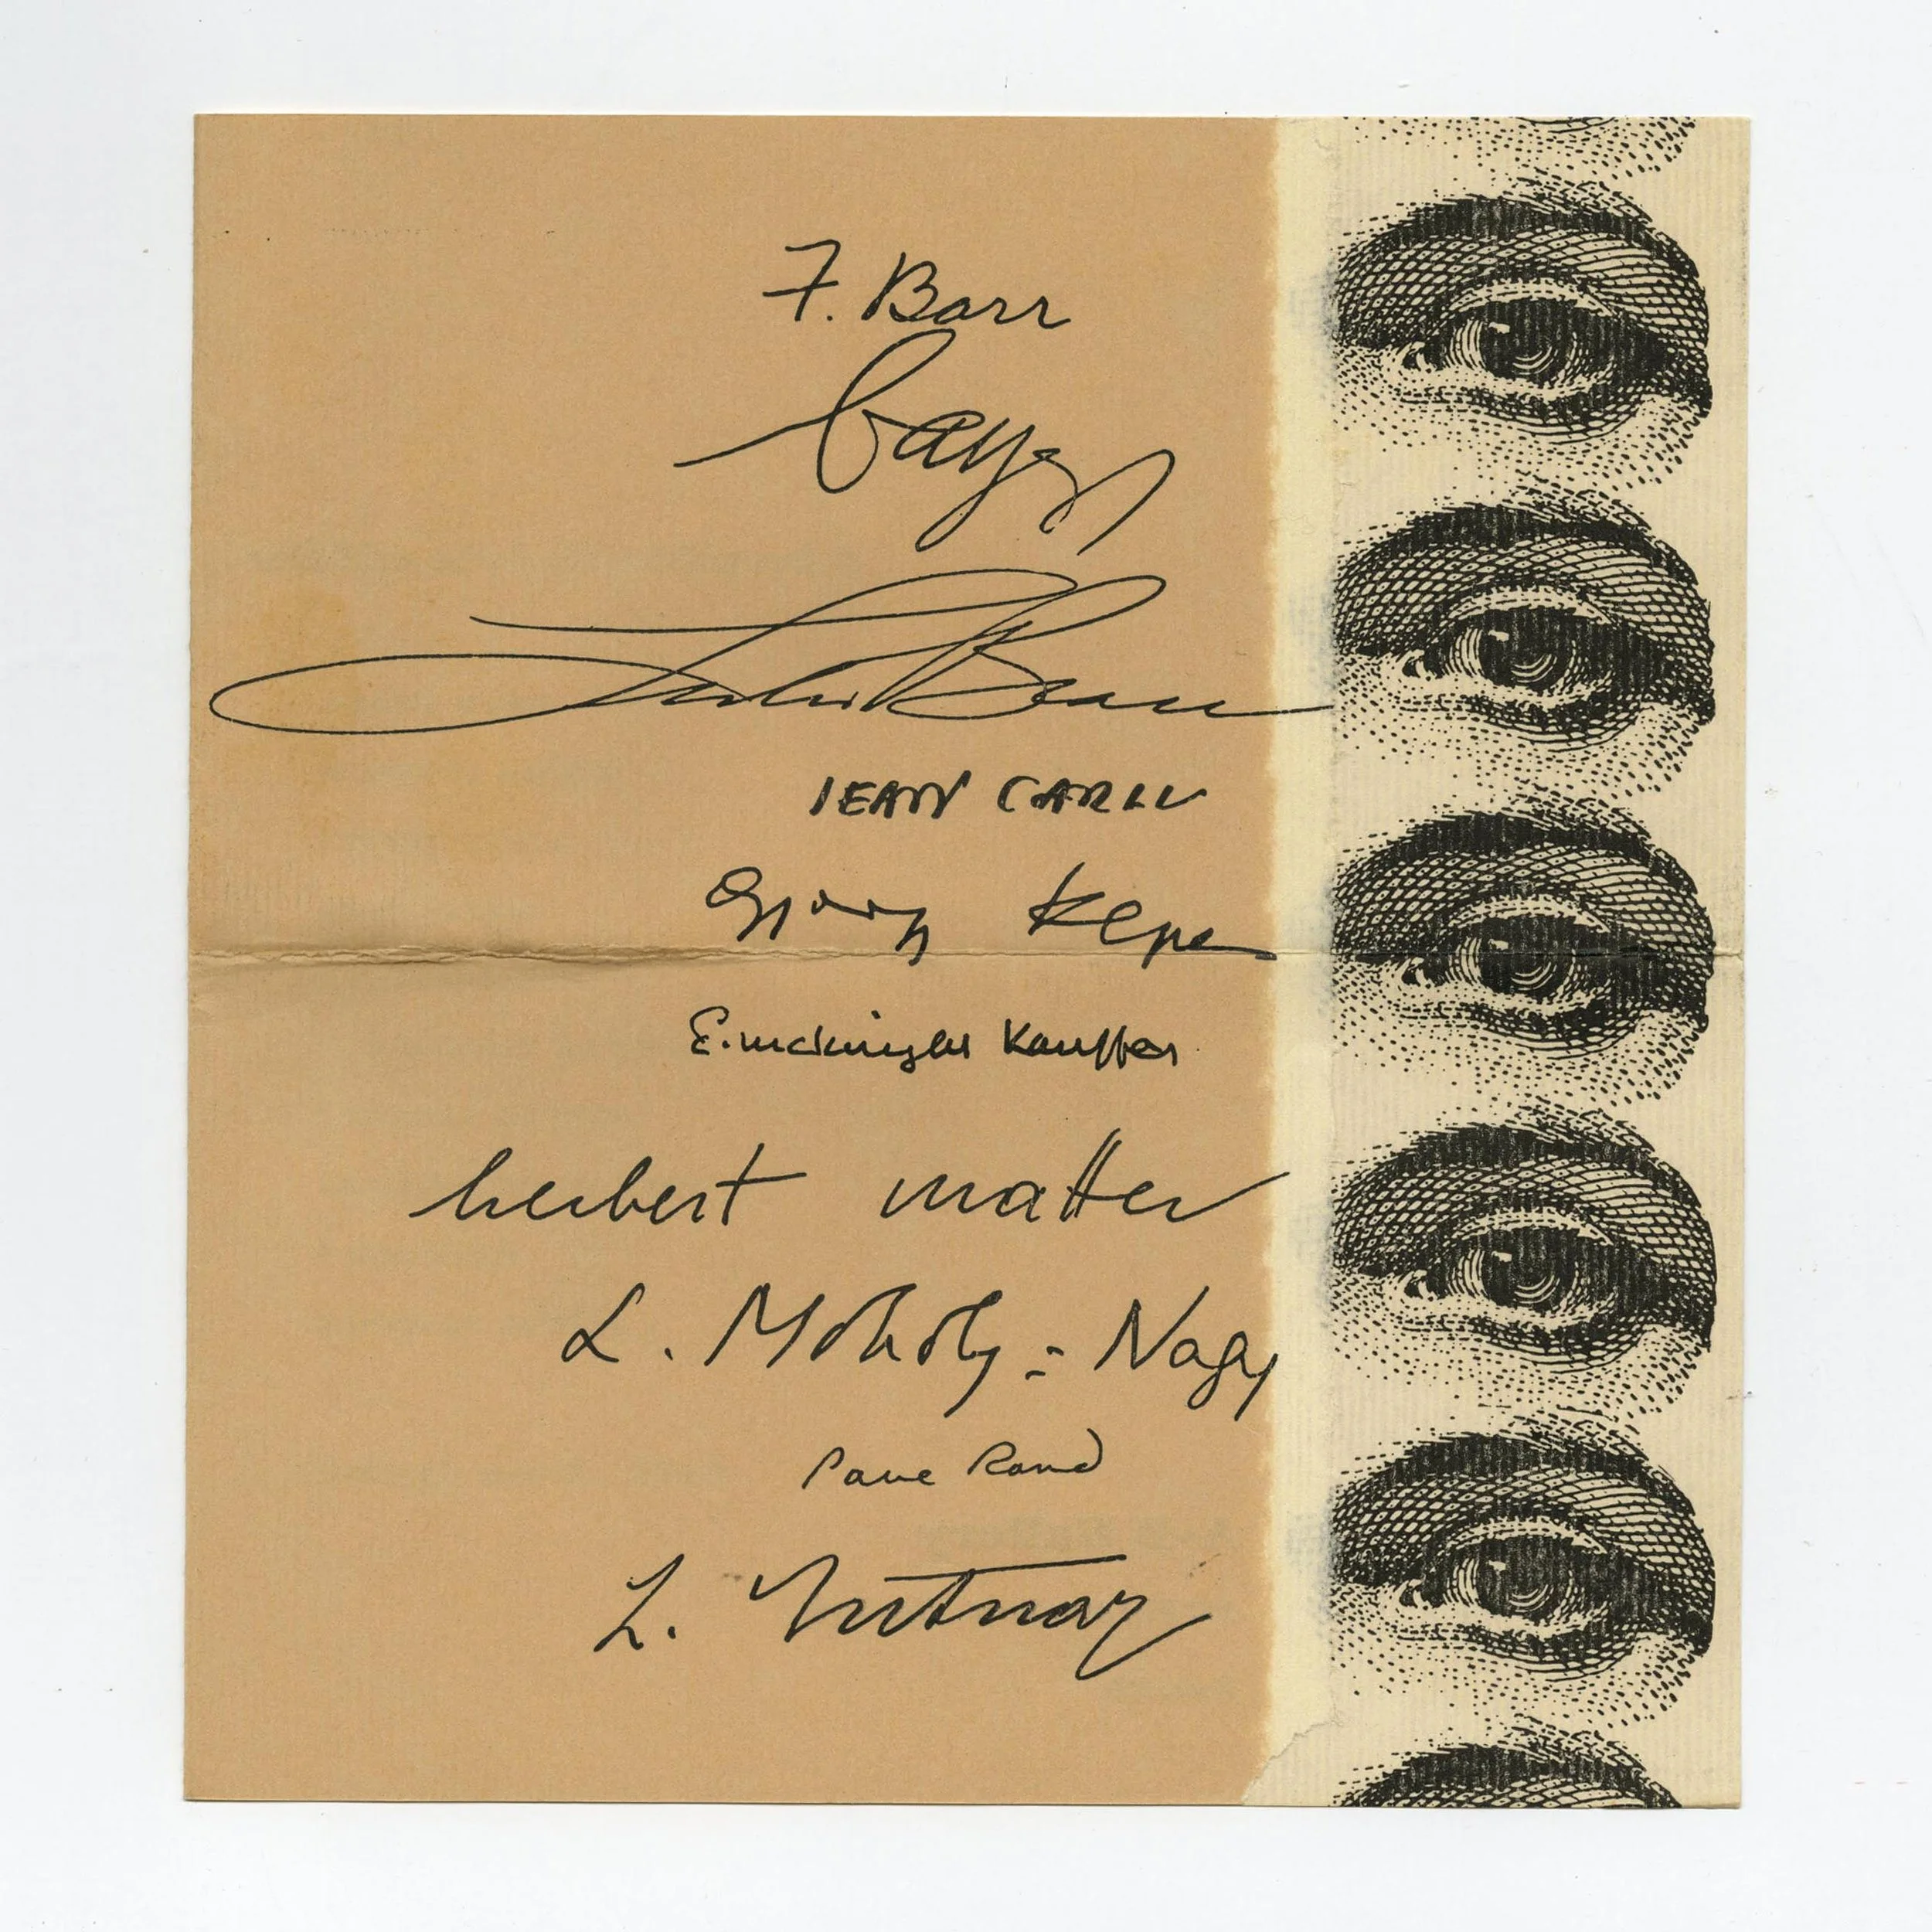 F. Barr
bayer
Lester Beall
JEAN CARLU
Gyorgy Kepes
E. McKnight Kauffer
herbert matter
L. Moholy=Nagy
Paul Rand
L. Sutnar